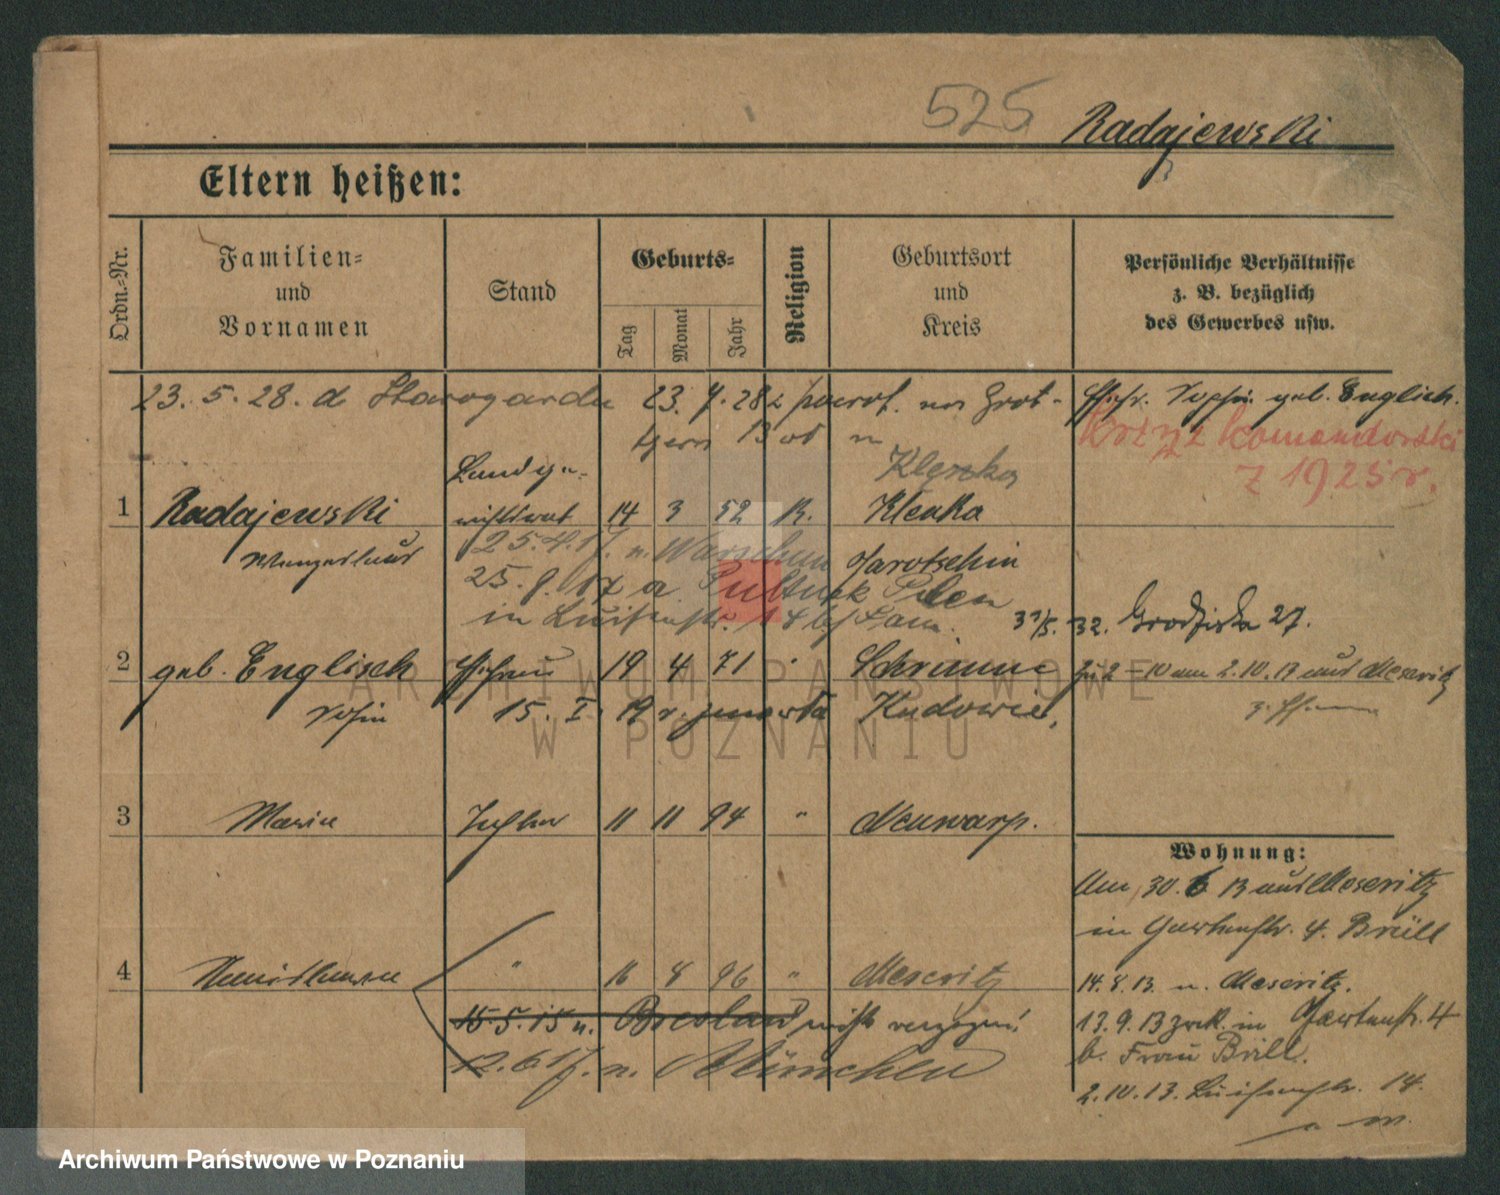 525 Radajewski
Eltern heißen:
Ordn.=Nr.
Familien=
und
Vornamen
Stand
Geburts=
Tag
Monat
Jahr
Religion
Geburtsort
und
Kreis
Persönliche Verhältnisse
z. B. bezüglich
des Gewerbes usw.
23. 5. 28. d Starogardu 23. 7. 28 z powrot.
geb. Englisch.
Krzyż komandorski
z 1925 r.
Klenka
1 Radajewski 14 3 52 K. Klenka
25. 4. 17. n. Warschau Jarotschin
25. 9. 17 a Pultusk Polen
in Luisenstr. 14
31/5. 32. Grodziska 27.
2 geb. Englisch Ehefrau 19 4 71 " Schrimm
2.10.13 aus Meseritz
15. I. 19 r. zmarła Kudowie,
3 Marie Tochter 11 11 94 " Neuwarp.
Wohnung:
Am 30.6 13 aus Meseritz
in Gartenstr. 4. Brüll
4 " 16 8 96 " Meseritz
14. 8. 13. n. Meseritz.
15. 5. 15 n. Breslau nicht verzogen!
13. 9. 13 zrck. in Gartenstr. 4
b. Frau Brill.
12. 6 17. n. München
2. 10. 13. Luisenstr. 14.
ARCHIWUM PAŃSTWOWE
W POZNANIU
Archiwum Państwowe w Poznaniu